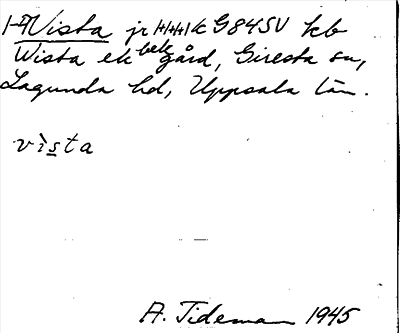 1-4 Vista jr 1+1+1 k G84SV kb
Wista ek bel. gård, Giresta sn,
Lagunda hd, Uppsala län.
vìsta
A. Tideman 1945